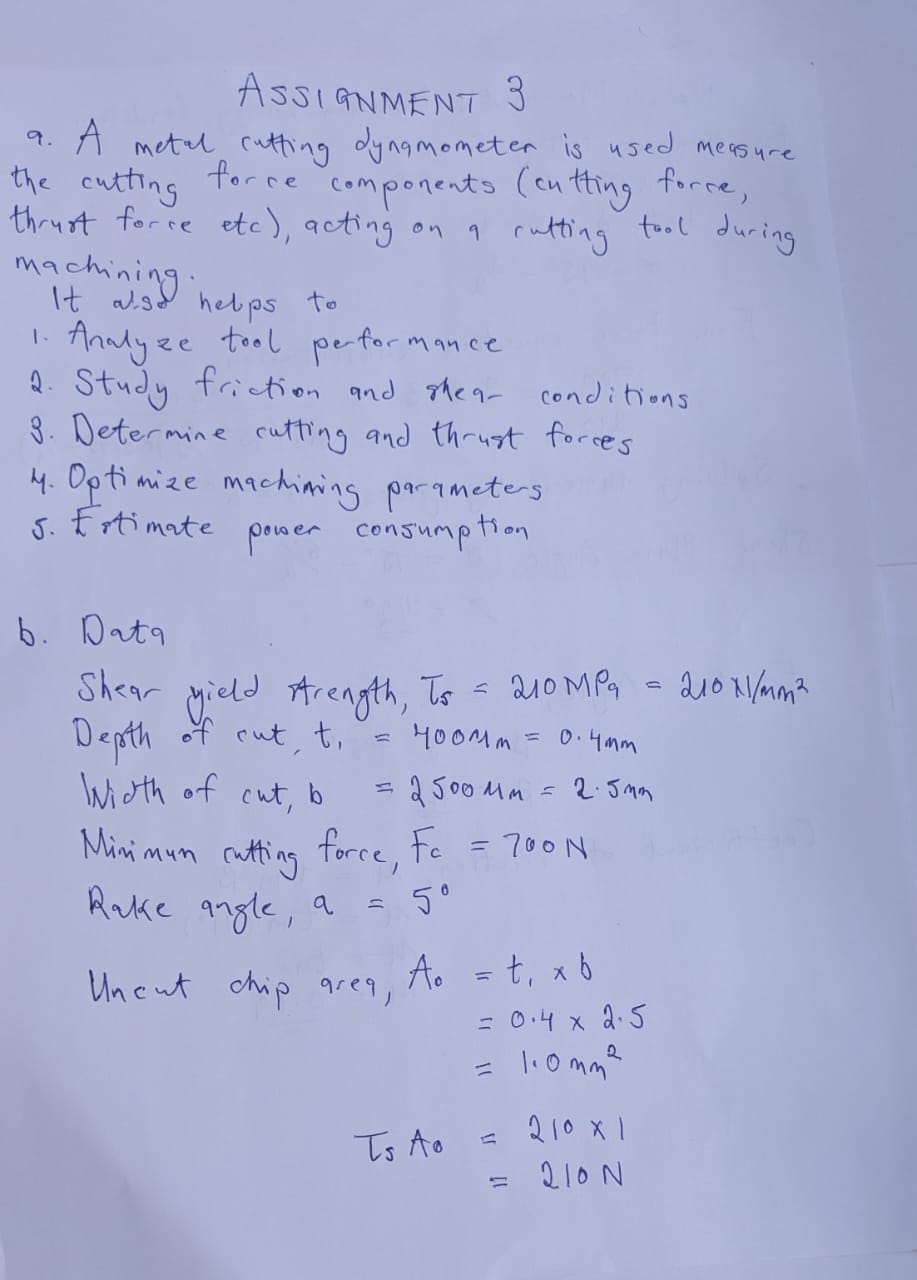 ASSIGNMENT 3
a. A metal cutting dynamometer is used measure
the cutting force components (cutting force,
thrust force etc), acting on a cutting tool during
machining.
It also helps to
1. Analyze tool performance
2. Study friction and shear conditions
3. Determine cutting and thrust forces
4. Optimize machining parameters
5. Estimate power consumption
b. Data
Shear yield strength, Ts = 210MPa = 210N/mm²
Depth of cut, t₁ = 400μm = 0.4mm
Width of cut, b = 2500μm = 2.5mm
Minimun cutting force, Fc = 700N
Rake angle, a = 5°
Uncut chip area, Ao = t₁ x b
= 0.4 x 2.5
= 1.0mm²
Ts Ao = 210 x 1
= 210N